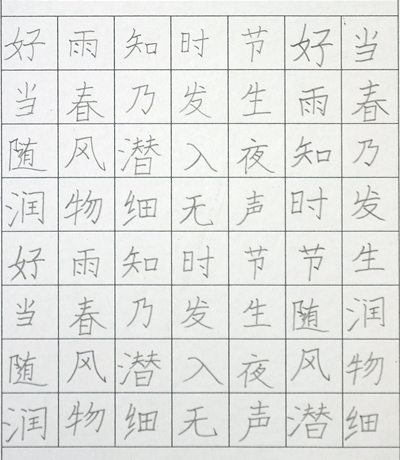 好雨知时节好当
当春乃发生雨春
随风潜入夜知乃
润物细无声时发
好雨知时节节生
当春乃发生随润
随风潜入夜风物
润物细无声潜细